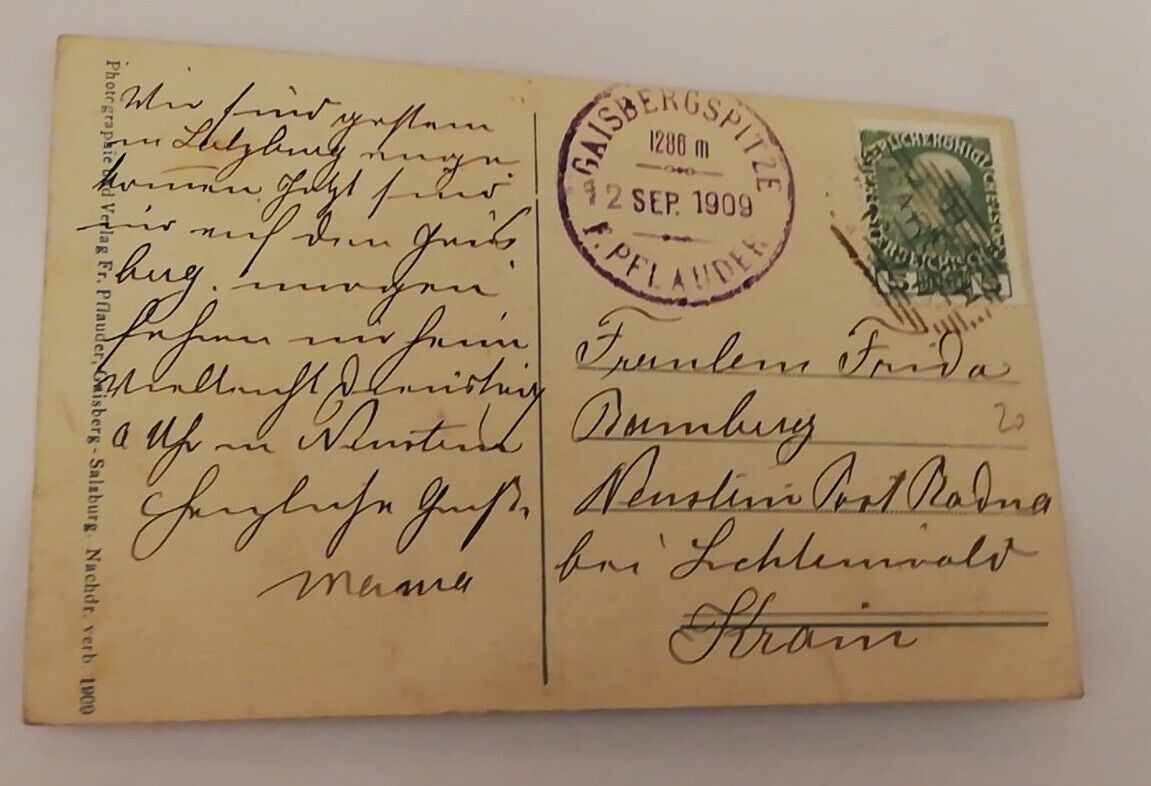 Photographie und Verlag Fr. Pflauder, Gaisberg - Salzburg. Nachdr. verb. 1900
Wir sind gestern
in Salzburg ange
kommen Jetzt sind
wir auf dem Gais
berg. morgen
fahren wir heim
Vielleicht Dienstag
Uhr in Neustein
Herzliche Grüße
Mama
GAISBERGSPITZE
1286 m
12 SEP. 1909
F. PFLAUDER
Fräulein Frida
Bamberg
Neustein Post Radna
bei Lichtenwald
Krain
20